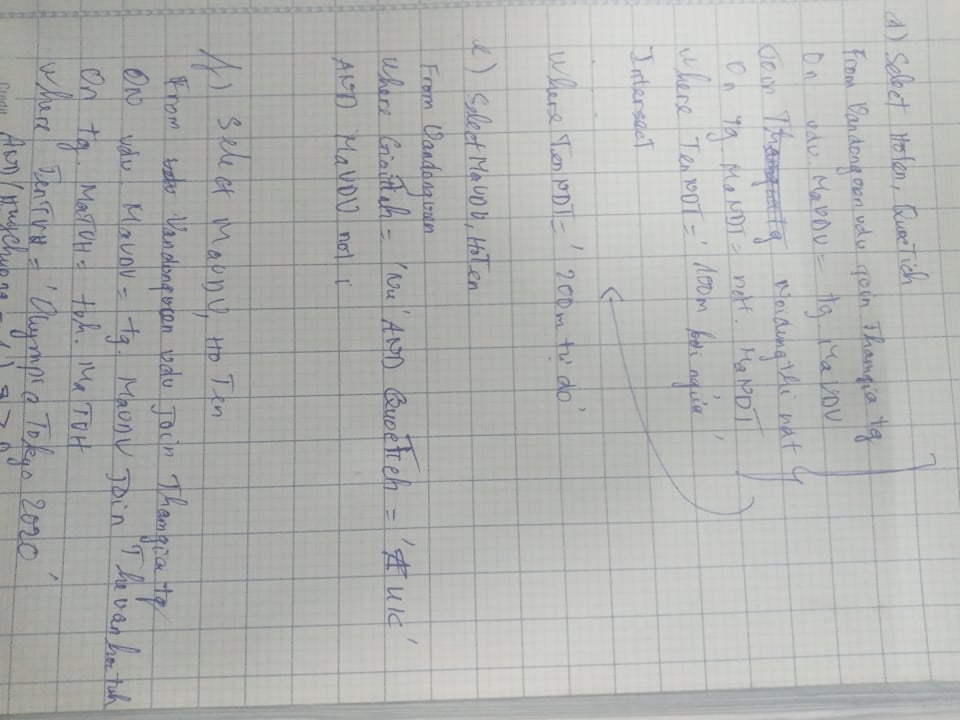 d) Select Hoten, Quoctich
From Vandongvien vdv join Thamgia tg
On vdv. MaVDV = tg MaVDV
Join Noidungthi ndt
On tg. MaNDT = ndt. MaNDT
Where TenNDT = '100m bơi ngửa'
Intersect
Where TenNDT = '200m tự do'
e) Select MaVDV, HoTen
From Vandongvien
Where Gioitinh = 'Nu' AND QuocTich = 'Uc'
AND MaVDV not i
f) Select MaVDV, HoTen
From Vandongvien vdv Join Thamgia tg
ON vdv. MaVDV = tg. MaVDV Join Thevanhoi tvh
On tg. MaTVH = tvh. MaTVH
Where TenTVH = 'Olympic Tokyo 2020'
AND